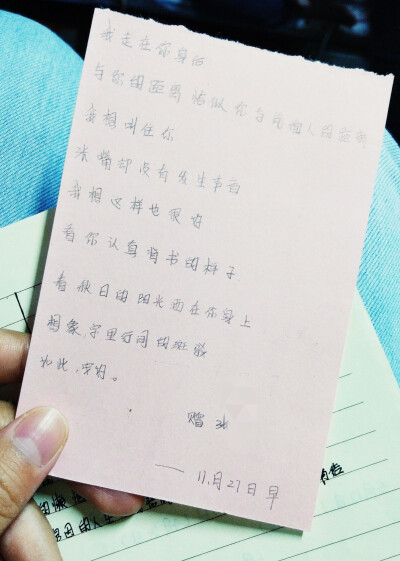 我走在你身后
与你的距离恰似你与他人的距离
我想叫住你
张嘴却没有发生声音
我想这样也很好
看你认真背书的样子
看秋日的阳光洒在你身上
想象字里行间的斑驳
如此,安好。
赠
—— 11月27日 早
的人生